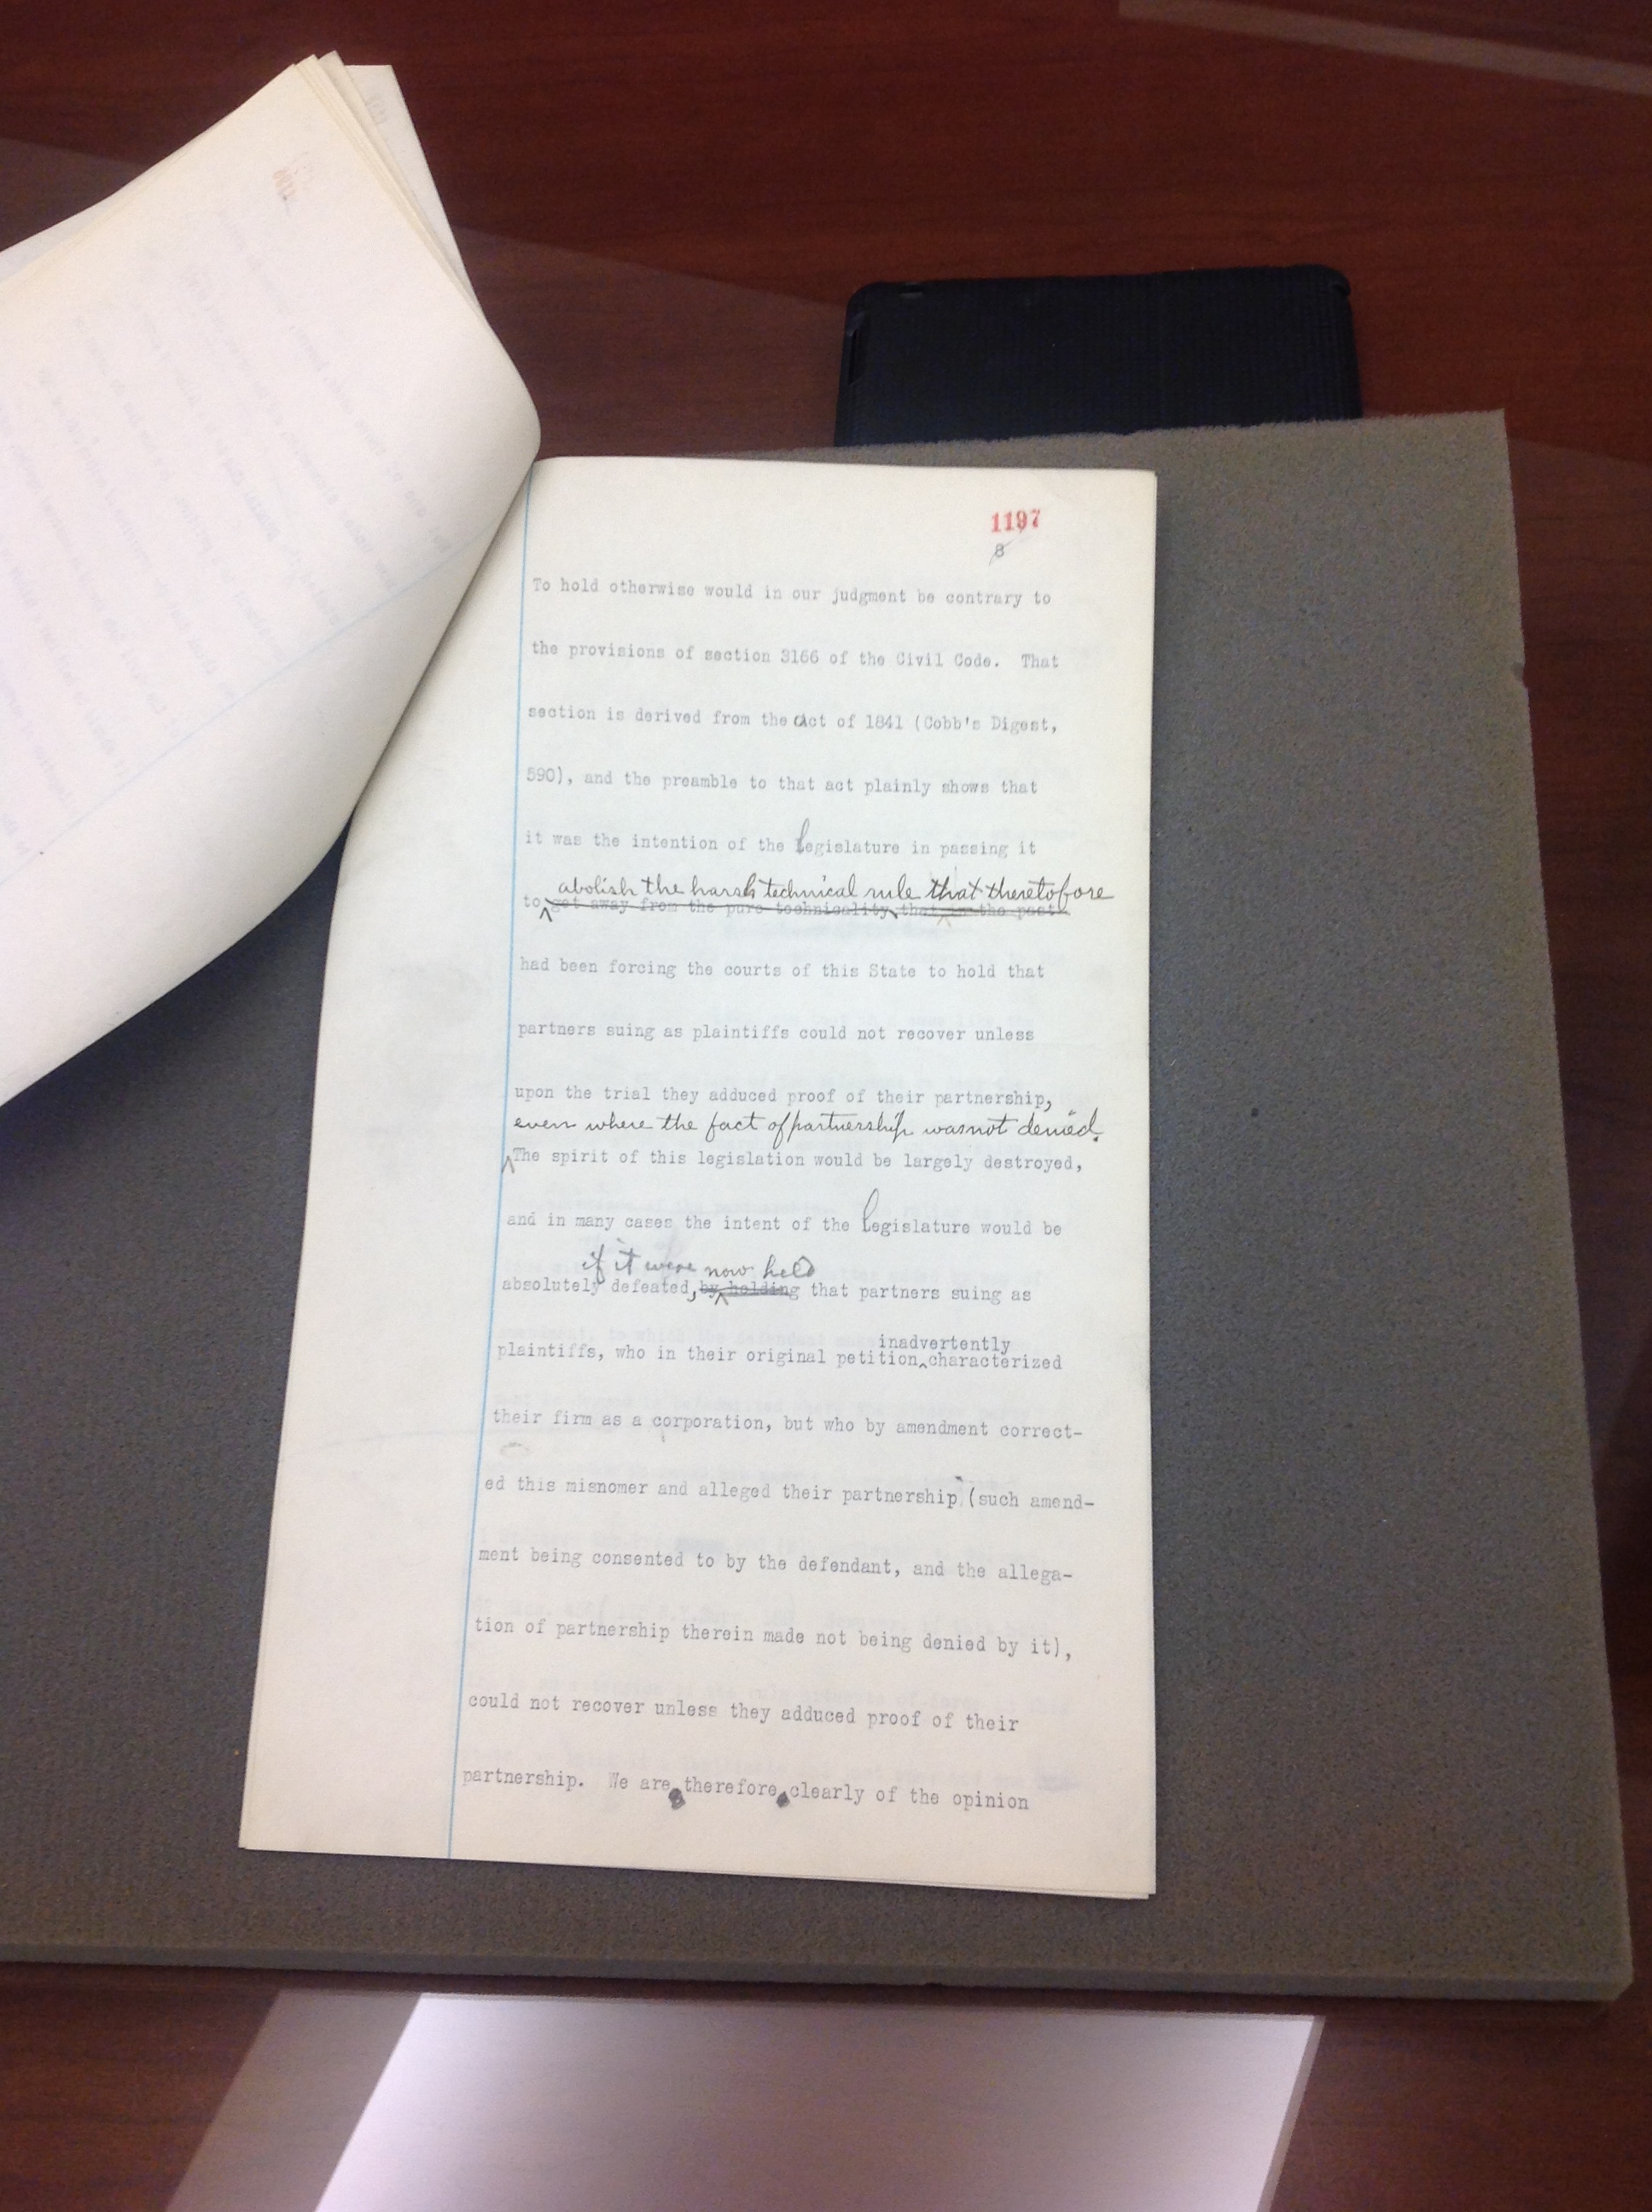 1197
8
To hold otherwise would in our judgment be contrary to
the provisions of section 3166 of the Civil Code. That
section is derived from the Act of 1841 (Cobb's Digest,
590), and the preamble to that act plainly shows that
it was the intention of the legislature in passing it
abolish the harsh technical rule that theretofore
to get away from the pure technicality, that in the past
had been forcing the courts of this State to hold that
partners suing as plaintiffs could not recover unless
upon the trial they adduced proof of their partnership,
even where the fact of partnership was not denied.
The spirit of this legislation would be largely destroyed,
and in many cases the intent of the legislature would be
if it were now held
absolutely defeated, by holding that partners suing as
inadvertently
plaintiffs, who in their original petition characterized
their firm as a corporation, but who by amendment correct-
ed this misnomer and alleged their partnership (such amend-
ment being consented to by the defendant, and the allega-
tion of partnership therein made not being denied by it),
could not recover unless they adduced proof of their
partnership. We are therefore clearly of the opinion